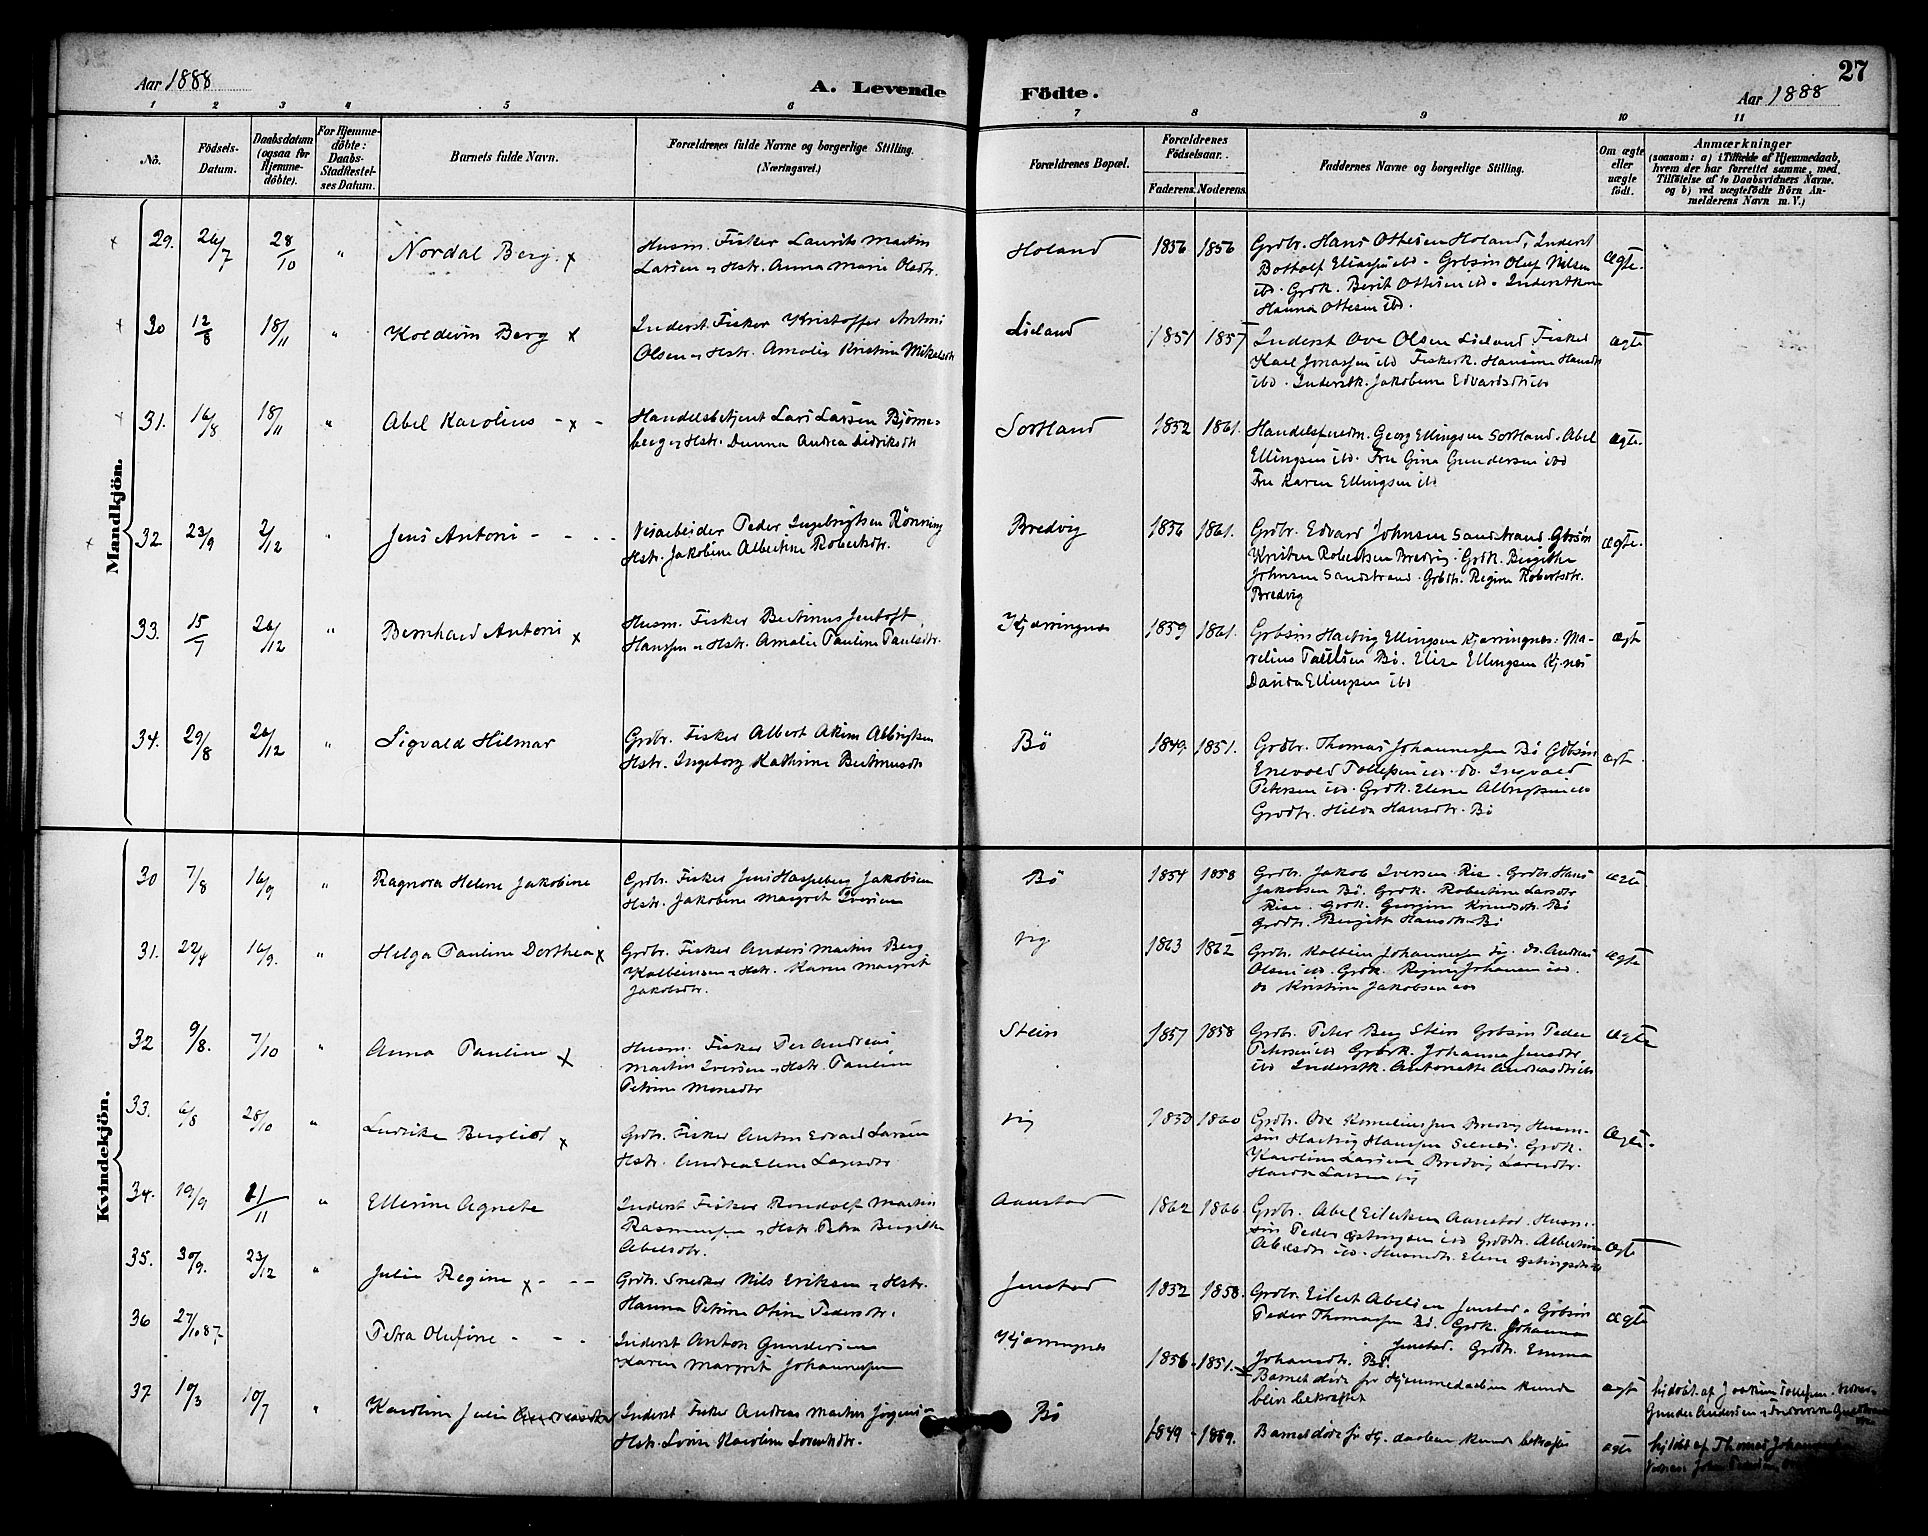 Aar 1888
A. Levende Födte.
Aar 1888
27
1 2 3 4 5 6 7 8 9 10 11
No.
Födsels-Datum.
Daabsdatum (ogsaa for Hjemme-döbte).
For Hjemme-döbte: Daabs-Stadfæstelses Datum.
Barnets fulde Navn.
Forældrenes fulde Navne og borgerlige Stilling.
(Næringsvei.)
Forældrenes Bopæl.
Forældrenes Födselsaar.
Faderens. Moderens.
Faddernes Navne og borgerlige Stilling.
Om ægte eller uægte födt.
Anmærkninger
(saasom: a) i Tilfælde af Hjemmedaab,
hvem der har forrettet samme, med
Tilföielse af to Daabsvidners Navne.
og b) ved uægtefödte Börn An-
melderens Navn m. V.)
Mandkjön.
29. 26/7 28/10 " Nordal Berg. x
Husm. Fisker Laurits Martin
Larsen og Hstr. Anna Marie Olsdtr.
Holand 1856 1856
Grdbr. Hans Ottesen Holand, Inderst
Bottolf Eliassen ibd. Grbsön Oluf Nilsen
ibd. Grdk. Berit Ottesen ibd. Inderstkone
Hanna Ottesen ibd.
Ægte.
30 12/8 18/11 " Koldevin Berg x
Inderst Fisker Kristoffer Antoni
Olsen og Hstr. Amalie Kristine Mikelsdtr
Lieland 1851 1857
Inderst Ove Olsen Lieland Fisker
Karl Jonassen ibd Fiskerk. Hansine Hansdtr
ibd. Inderstk. Jakobine Edvardsdtr ibd
ægte
31. 16/8 18/11 " Abel Karolius - x -
Handelsbetjent Lars Larsen Bjørne-
berg og Hstr. Dunna Andrea Didriksdtr
Sortland 1852 1861.
Handelsfuldm. Georg Ellingsen Sortland. Abel
Ellingsen ibd. Fru Gina Gundersen ibd
Fru Karen Ellingsen ibd
ægte.
32 23/9 2/12 " Jens Antoni - - - -
Veiarbeider Peder Ingebrigtsen Rönning
Hstr. Jakobine Albertine Robertsdtr.
Bredvig 1856 1861.
Grdbr. Edvard Johnsen Sandstrand Gbrsön
Kristen Robertsen Bredvig. Grdk. Birgithe
Johnsen Sandstrand. Grbdtr. Regine Robertsdtr.
Bredvig
ægte.
33. 15/7 26/12 " Bernhard Antoni x
Husm. Fisker Bertinus Jentoft
Hanssen og Hstr. Amalie Pauline Paulsdtr.
Kjærringnes 1859 1861.
Grbsön Hartvig Ellingsen Kjærringnes. Ma-
relius Paulsen Bö. Elise Ellingsen Kj.nes
Davida Ellingsen ibd
ægt
34. 29/8 26/12 " Sigvald Hilmar
Grdbr. Fisker Albert Akim Albrigtsen
Hstr. Ingeborg Kathrine Bertinusdtr
Bö 1849 1851.
Grdbr. Thomas Johannessen Bö Gdbsön
Enevold Tollefsen ibd. do. Ingvald
Petersen ibd. Grdk. Elene Albrigtsen ibd
Grdtr. Hilda Hansdtr. Bö
ægt.
Kvindekjön.
30 7/8 16/9 " Ragnora Helene Jakobine
Grdbr. Fisker Jens Hasselberg Jakobsen
Hstr. Jakobine Margrit Iversen
Bö 1854 1858
Grdbr. Jakob Iversen Rise. Grdbr. Hans
Jakobsen Bö. Grdk. Robertine Larsdtr
Rise. Grdk. Georgine Knudsdtr. Bö
Grdtr. Birgitte Hansdtr. Bö
ægte
31. 22/4 16/9. " Helga Pauline Dorthea x
Grdbr. Fisker Anders Martin Berg
Kolbeinsen og Hstr. Karen Margrit
Jakobsdtr.
Vig 1863 1862
Grdbr. Kolbein Johannessen Vig. do. Andreas
Olsen ibd. Grdk. Johansen ibd.
do Kristine Jakobsen ibd
Ægte
32 9/8. 7/10 " Anna Pauline x
Husm. Fisker Per Andreas
Martin Iversen og Hstr. Pauline
Petrine Monsdtr
Stein 1857 1858
Grdbr. Peter Berg Stein Grbsön Peder
Petersen ibd Grbrk. Johanna Jensdtr
ibd Inderstk. Antonette Andreasdtr ibd
Ægte
33. 6/8 28/10 " Ludvika Bergliot x
Grdbr. Fisker Anton Edvard Larsen
Hstr. Andrea Elene Larsdtr
Vig 1850 1860
Grdbr. Ove Korneliussen Bredvig Husm-
sön Hartvig Hanssen Selnes. Grdk.
Karoline Larsen Bredvig
Larsen Vig
Ægte.
34. 19/9 11/11 " Ellerine Agnete
Inderst Fisker Rondolf Martin
Rasmussen og Hstr. Petra Birgitte
Abelsdtr.
Aanstad 1862 1866
Grdbr. Abel Eilertsen Aanstad. Husm.-
sön Peder Østingsen ibd Grdbdtr. Albertine
Abelsdtr ibd. Husmdtr. Elene Østingsdtr ibd
ægte
35. 30/9. 23/12 " Julie Regine x - - -
Grdbr. Snedker Nils Eriksen og Hstr.
Hanna Petrine Oline Pedersdtr.
Jenstad 1852 1858.
Grdbr. Eilert Abelsen Jenstad. Grbsön
Peder Thomassen Bö. Grdk. Johanna
Jenstad. Grdtr. Emma
Johansdtr. Bö.
ægte
36 27/10 87. Petra Olufine - - -
Inderst Anton Gundersen
Karen Margrit Johannessen
Kjærringnes 1856 1851.
Barnet döde før Hjemmedaaben kunde
blive bekræftet
ægte
hjdöbt. af Joakim Tollefsen.
Gunder Andersen
37 19/3 10/7 " Karoline Julie Andreasdtr
Inderst Fisker Andreas Martin Jörgens-
Hstr. Lovise Karoline Lorentsdtr.
Bö 1849 1859.
Barnet döde før Hj. daaben kunde bekræftes
ægte
hjdöbt af Thomas Johannessen